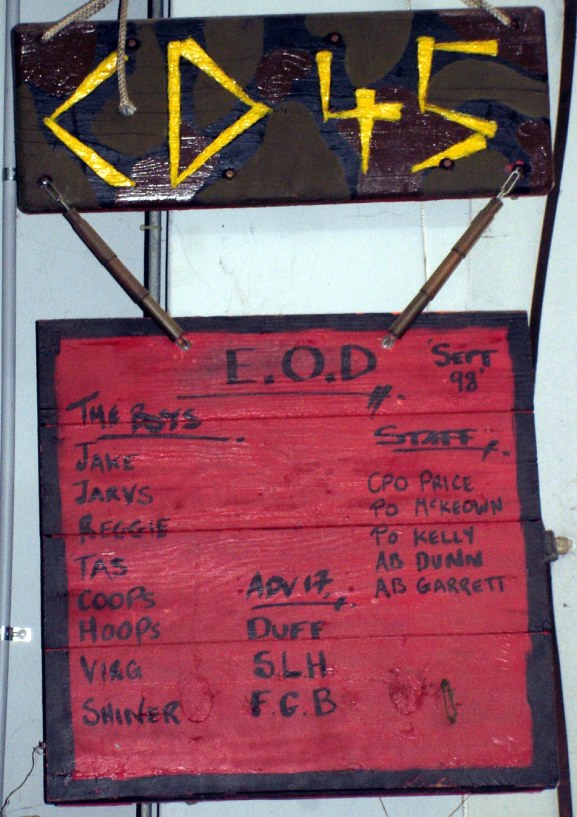 CD 45
E.O.D
'SEPT
98'
THE BOYS
JAKE
JARVS
REGGIE
TAS
COOPS
HOOPS
VIRG
SHINER
ADV 17
DUFF
S.L.H
F.G.B
STAFF
CPO PRICE
PO McKEOWN
PO KELLY
AB DUNN
AB GARRETT